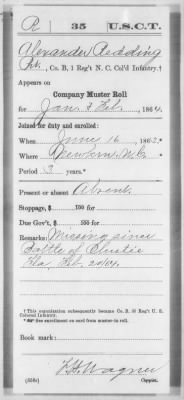 R 35 U.S.C.T.
Alexander Redding
Pvt., Co. B, 1 Reg't N. C. Col'd Infantry.†
Appears on
Company Muster Roll
for Jan. & Feb., 1864.
Joined for duty and enrolled:
When June 16, 1863.*
Where Newbern, N.C.
Period 3 years.*
Present or absent Absent
Stoppage, $ 100 for
Due Gov't, $ 100 for
Remarks: Missing since
battle of Olustee
Fla. Feb. 20/64.
† This organization subsequently became Co. B, 35 Reg't U. S.
Colored Infantry.
* See enrollment on card from muster-in roll.
Book mark:
Wagner
(358c) Copyist.